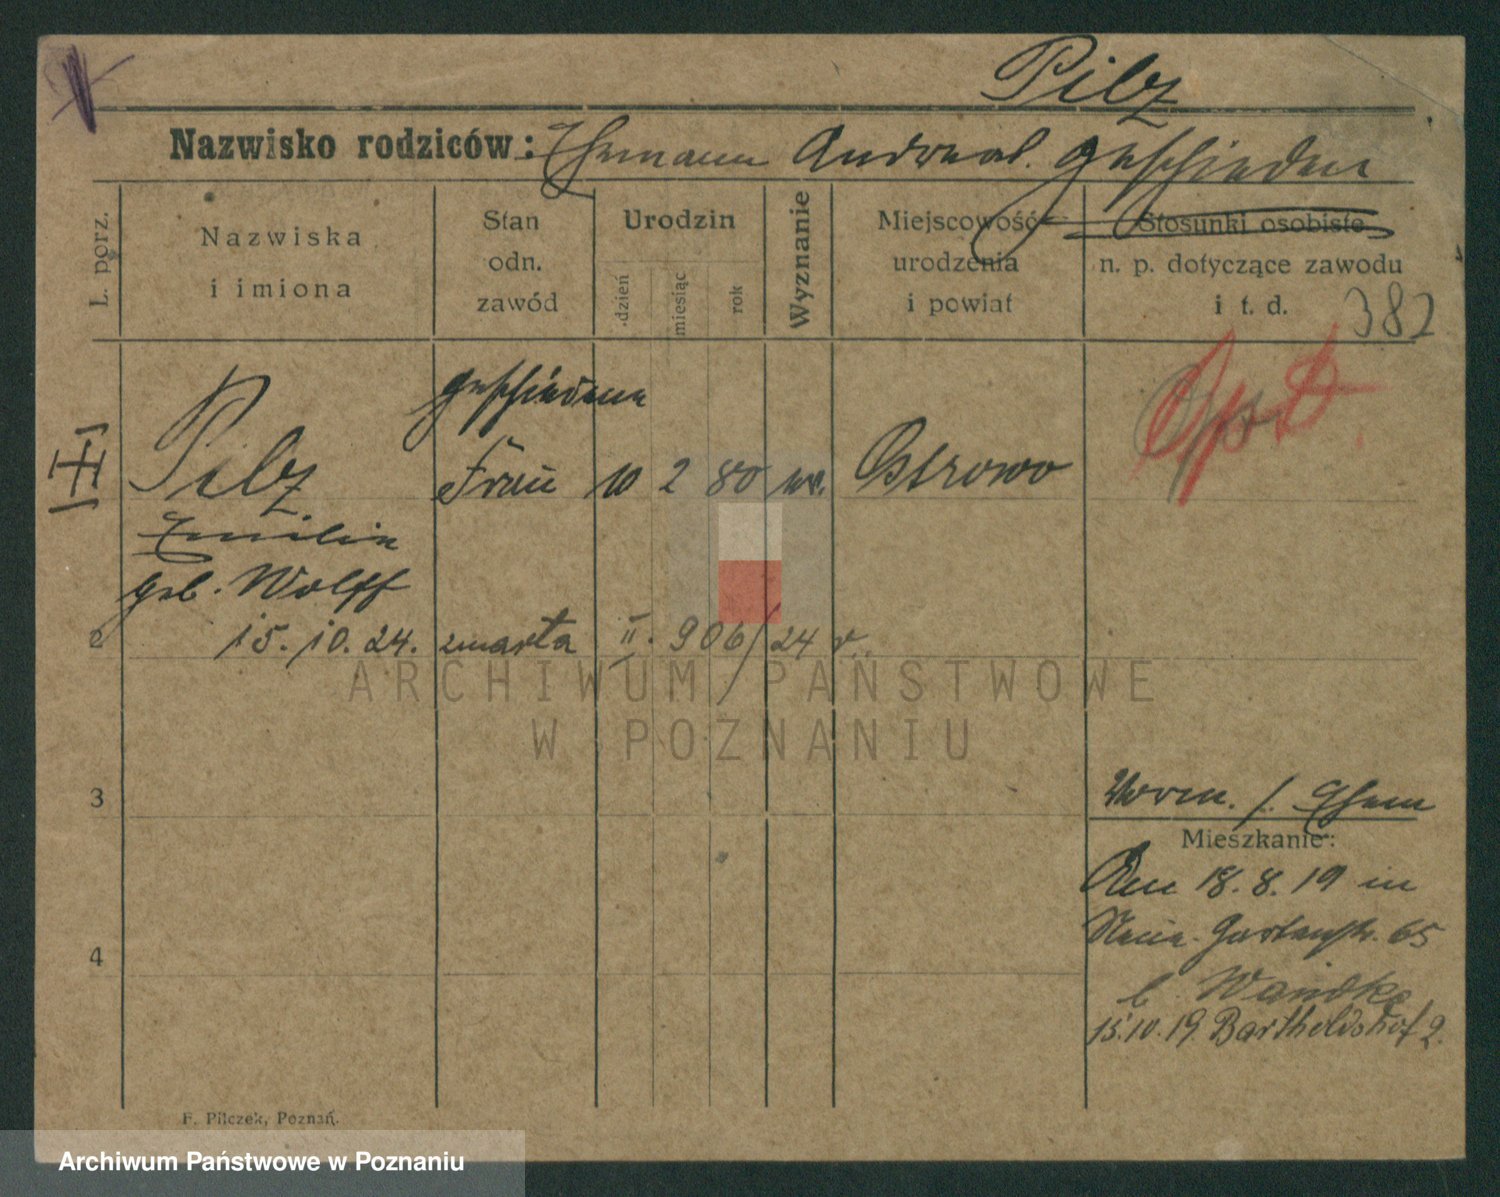 Pilz
Nazwisko rodziców: Ehemann Andreas. geschieden
L. porz.
Nazwiska
i imiona
Stan
odn.
zawód
Urodzin
dzień
miesiąc
rok
Wyznanie
Miejscowość
urodzenia
i powiat
Stosunki osobiste
n. p. dotyczące zawodu
i t. d.
382
geschiedene
Pilz Frau 10 2 80 ev. Ostrowo
Emilie
geb. Wolff
2 15. 10. 24. zmarła II. 906/24 r.
ARCHIWUM PAŃSTWOWE
W POZNANIU
3
Mieszkanie:
Den 18. 8. 19 in
Neue Gartenstr. 65
4
b. Wandke
15.10.19. Bartholdshof 2.
F. Pilczek, Poznań.
Archiwum Państwowe w Poznaniu